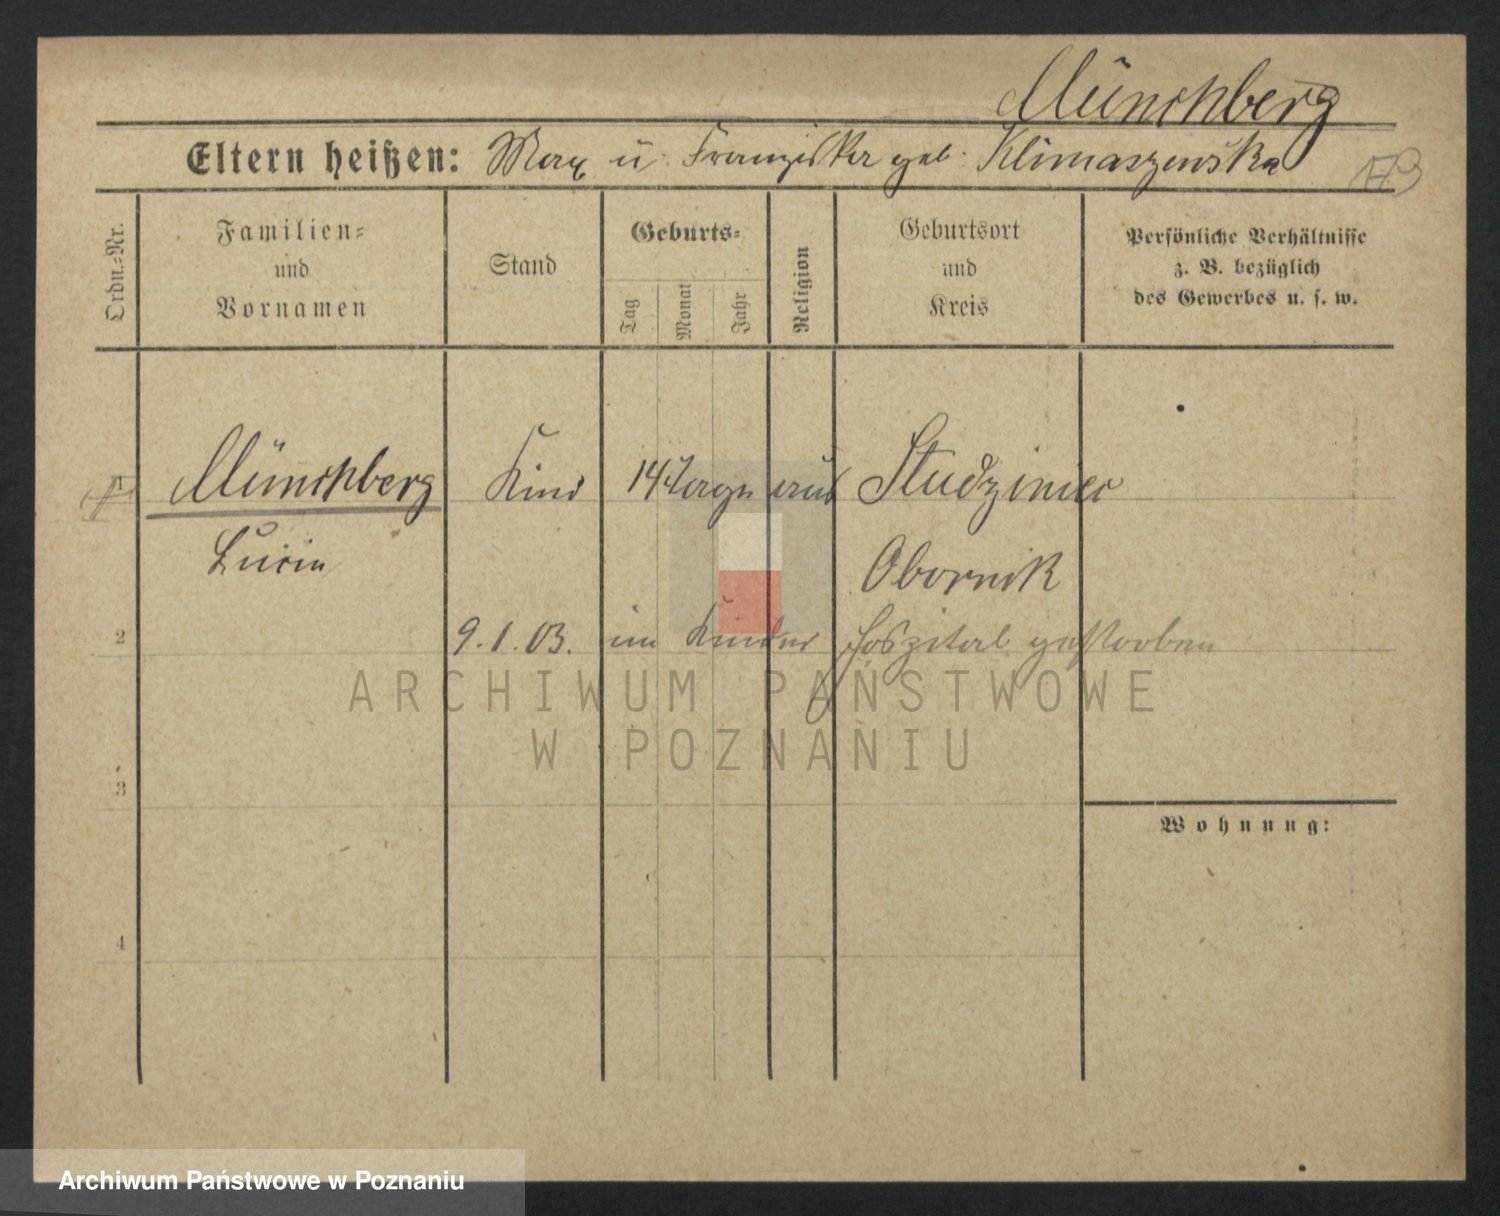 Münchberg
Eltern heißen: Max u. Franziska geb. Klimaszewska
Ordn.-Nr.
Familien- und Vornamen
Stand
Geburts-
Tag
Monat
Jahr
Religion
Geburtsort und Kreis
Persönliche Verhältnisse
z. B. bezüglich
des Gewerbes u. s. w.
1 Münchberg Kind 14 Tage aus Studziniec
Lucia Obornik
2 9.1.03. im Kinder hospital gestorben
ARCHIWUM PAŃSTWOWE
W POZNANIU
3
Wohnung:
4
Archiwum Państwowe w Poznaniu